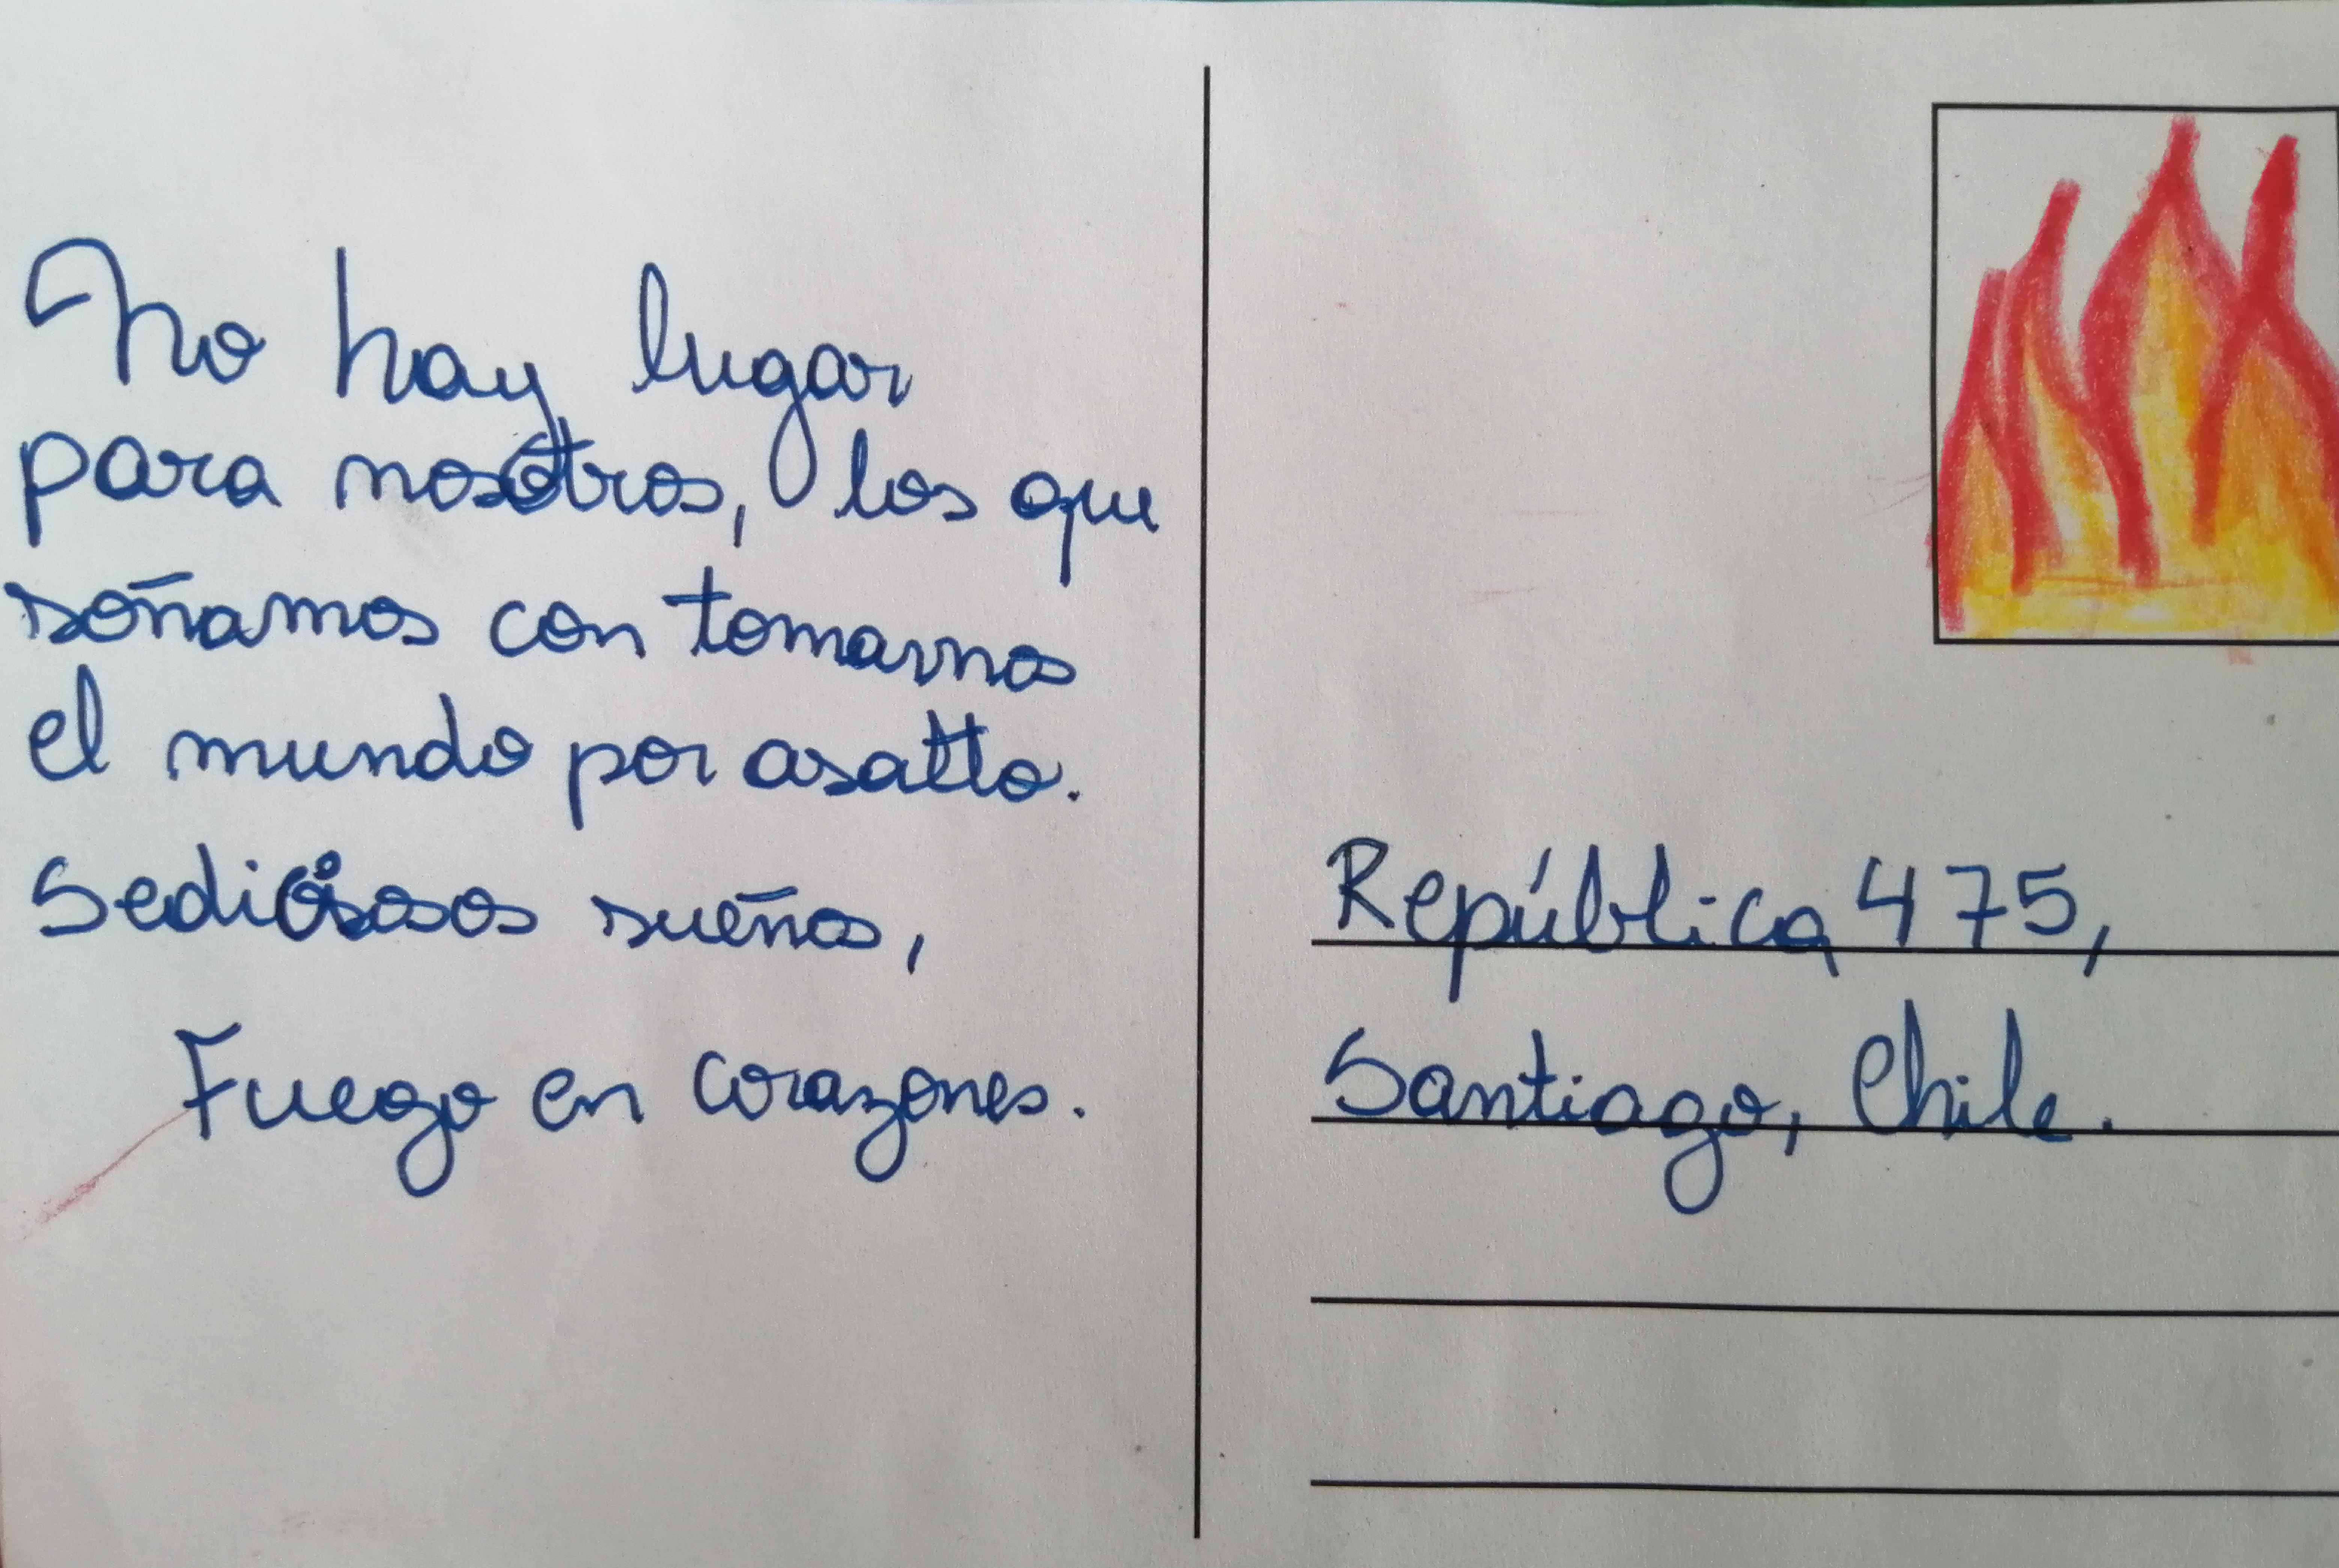 No hay lugar
para nosotros, los que
soñamos con tomarnos
el mundo por asalto.
Sediciosos sueños,
Fuego en corazones.
República 475,
Santiago, Chile.